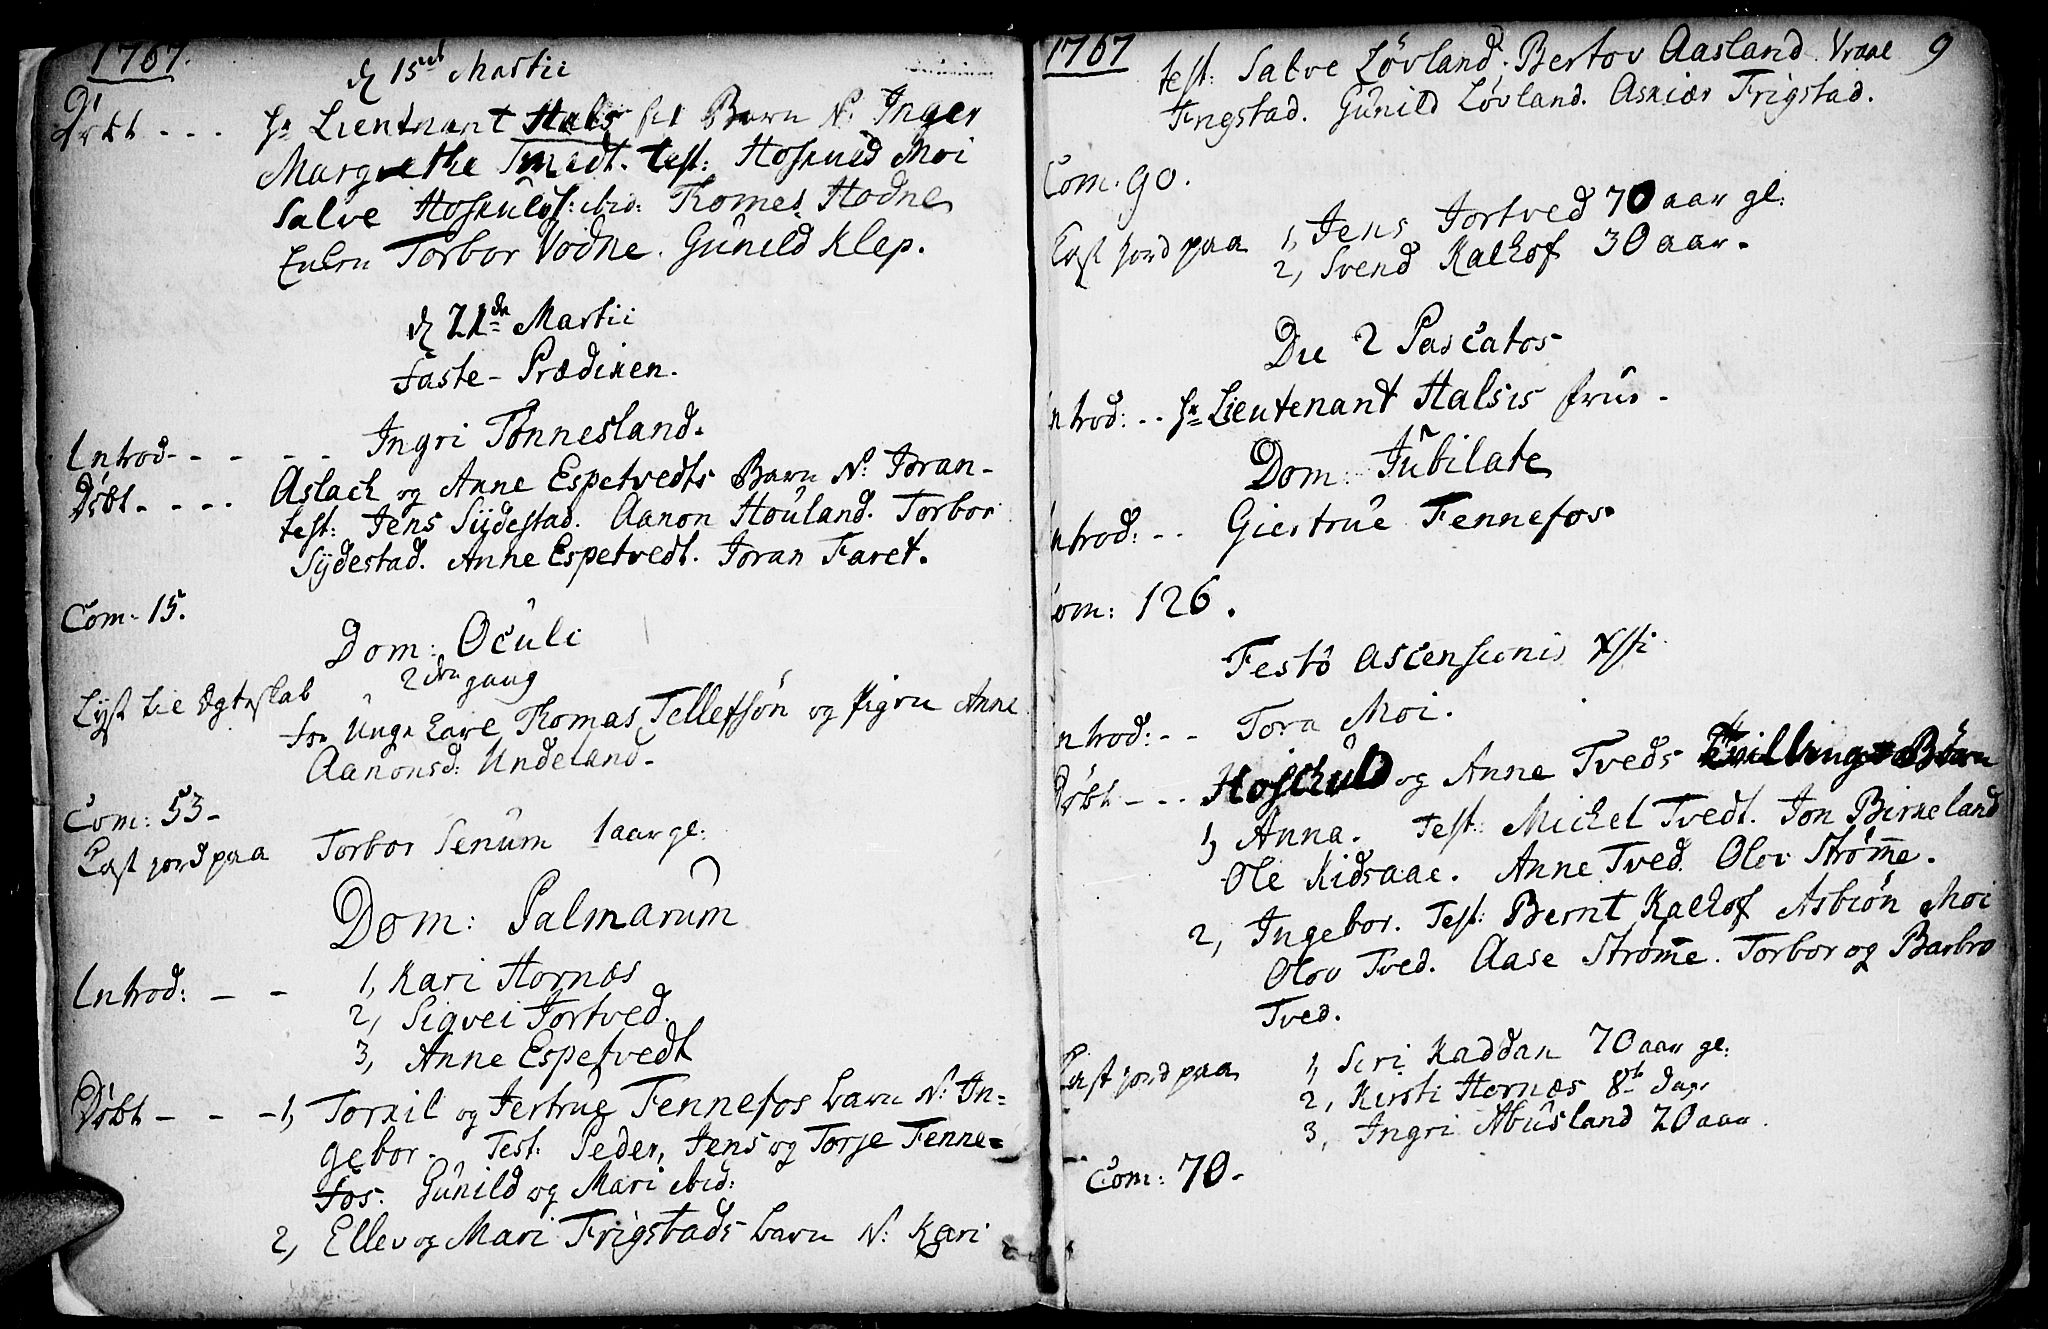 1767.
d 15de Martii
Døbt - - - Hr Lieutnant Hals sit Barn N: Inger
Margrethe test: Hoskuld Moi
Salve Hoskulds: ibid: Tomes Hodne
Torbor Vodne. Gunild Klep.
d 21de Martii
Faste-Prædiken.
Introd- - - - - Ingri Tonnesland.
Døbt - - - - Aslack og Anne Espetvedts Barn N: Joran-
test: Jens Sÿdestad. Aanon Houland. Torbor
Sÿdestad. Anne Espetvedt. Joran Faret.
Com- 15.
Dom: Oculi
2den gang
Lyst til Ægteskab
for Unge Karl Tomas Tellefsøn og Pigen Anne
Aanonsd: Undeland.
Com: 53-
Kast jord paa Torbor Senum 1 aar gl:
Dom: Palmarum
Introd: - - 1, Kari Hornæs
2, Sigvei Jortved.
3, Anne Espetvedt
Døbt - - - 1, Torkil og Jertrue Fennefos barn N: In=
gebor. Test: Peder, Jens og Torje Fenne=
fos. Gunild og Mari ibid:
2, Ellev og Mari Frigstads barn N: Kari
1767 9
test: Salve Løvland. Bertov Aasland Vraal
Frigstad. Gunild Løvland. Askiær Frigstad.
Com. 90.
Kast jord paa 1, Jens Jortved 70 aar gl:
2, Svend Kalhof 30 aar-
Die 2 Pascatos
ntrod: - - Hr Lieutenant Halsis frue -
Dom: Jubilate
ntrod: - - Giertrue Fennefos-
om: 126.
Festo Ascensionis Xsti
ntrod: - - Tora Moi.
Døbt - - - Hosckuld og Anne Tveds Tvillinge Børn
1, Anna. Test: Michel Tvedt. Jon Birkeland
Ole Kidsaae. Anne Tved. Olov Strøm̄e.
2, Ingebor. Test: Bernt Kalhof Asbiøn Moi
Olov Tved. Aase Strøm̄e. Torbor og Barbro
Tved.
Kast jord paa 1, Siri Kaddan 70 aar gl:
2, Kirsti Hornæs 8te dage
3, Ingri Abusland 20 aar.
Com: 70-